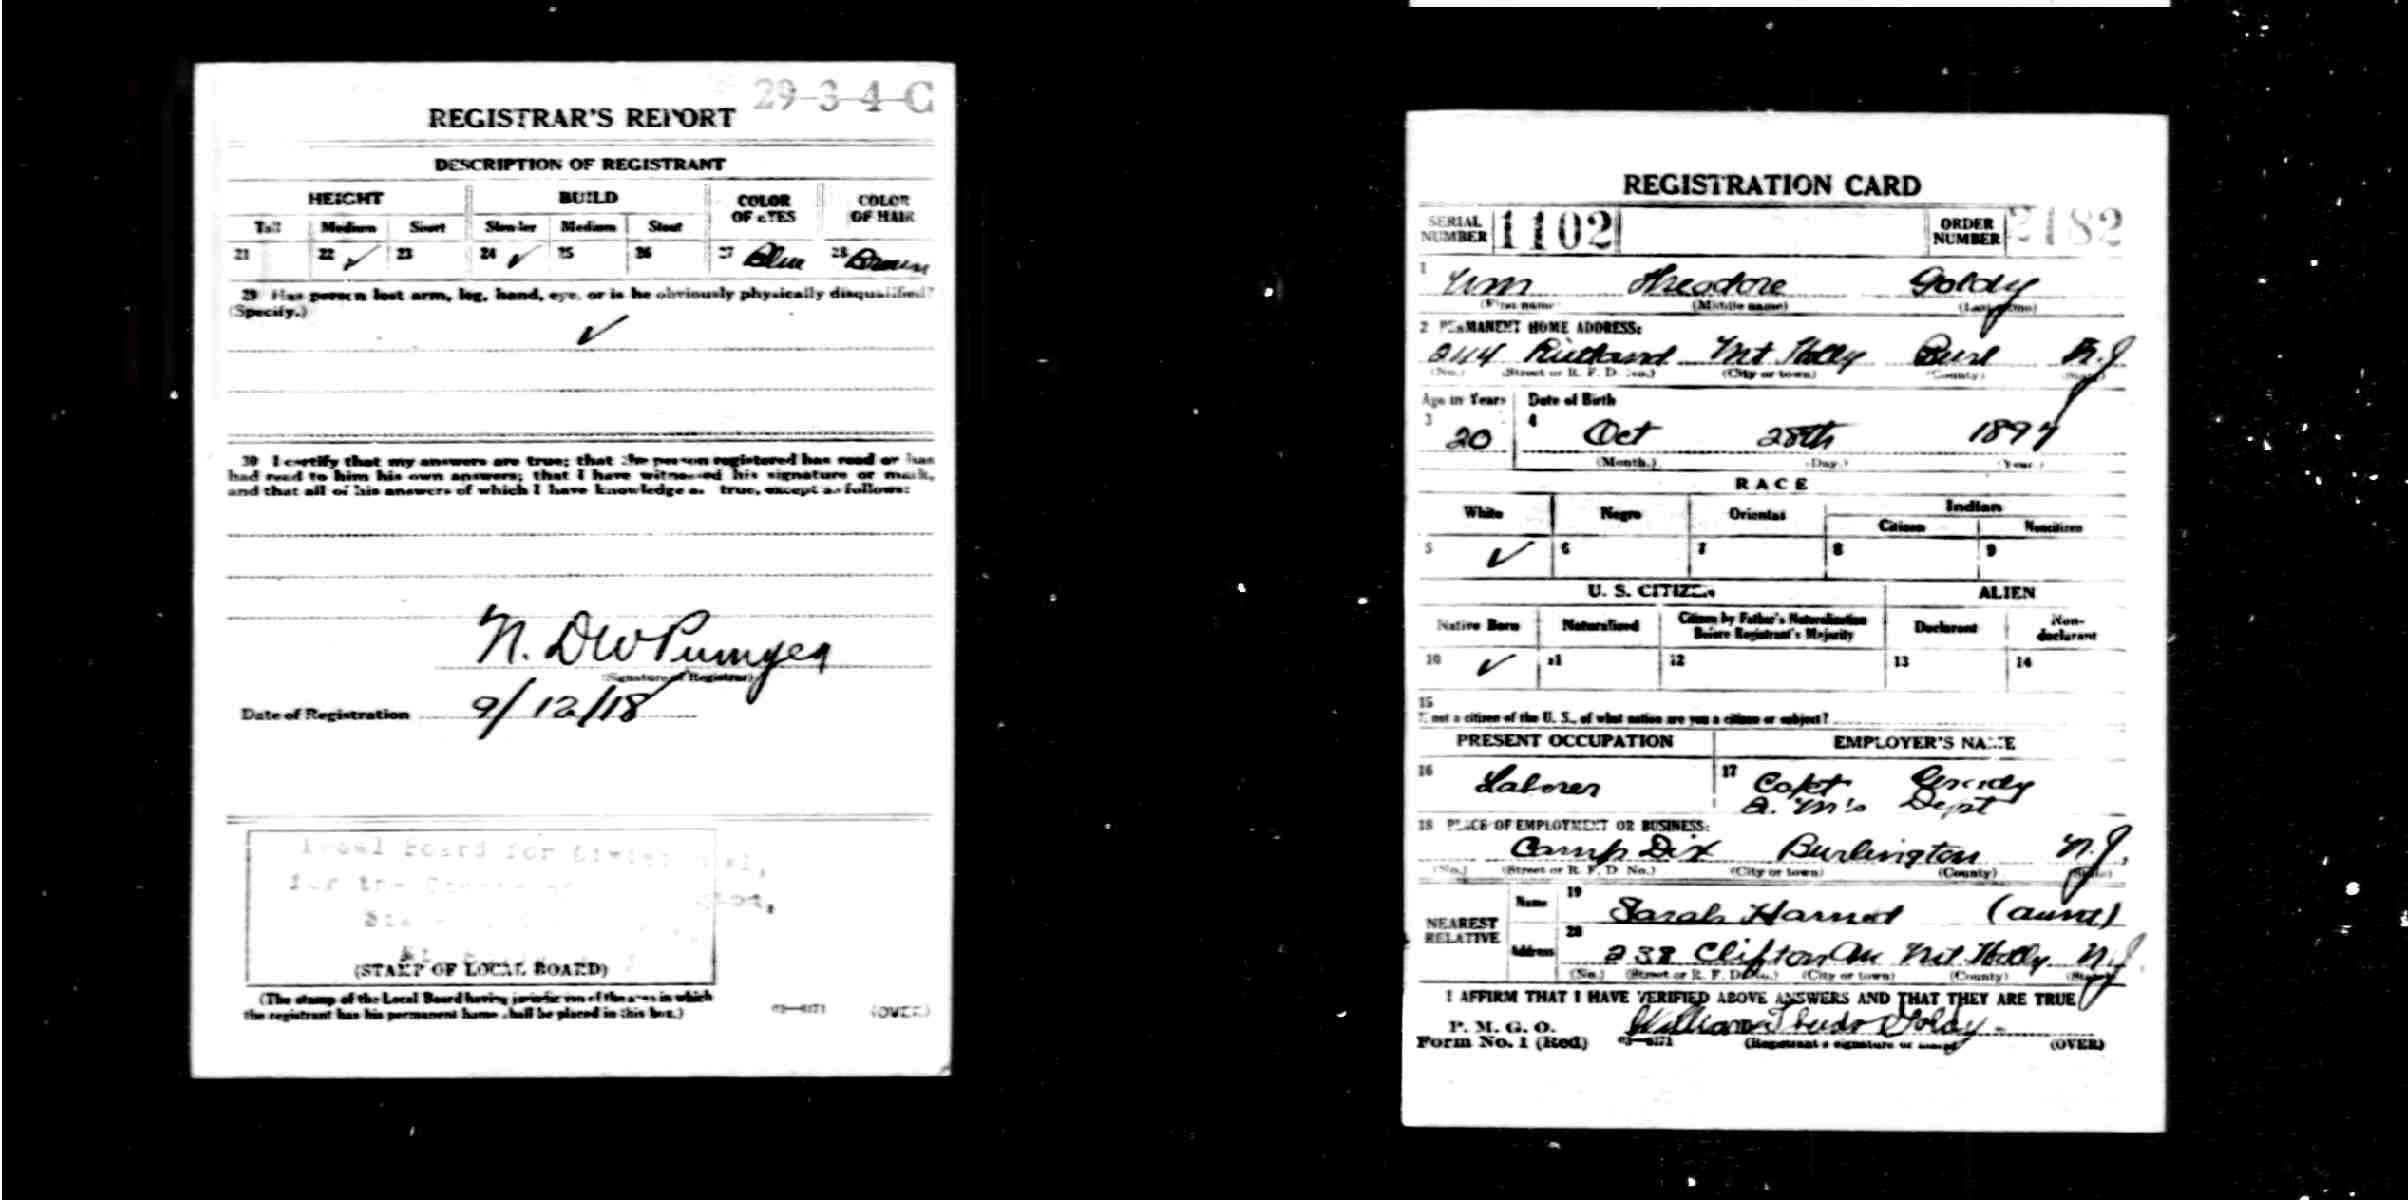 29-3-4-C
REGISTRAR'S REPORT
DESCRIPTION OF REGISTRANT
HEIGHT BUILD COLOR OF EYES COLOR OF HAIR
Tall Medium Short Slender Medium Stout
21 22 ✓ 23 24 ✓ 25 26 27 Blue 28 Brown
29 Has person lost arm, leg, hand, eye, or is he obviously physically disqualified?
(Specify.)
✓
30 I certify that my answers are true; that the person registered has read or has
had read to him his own answers; that I have witnessed his signature or mark,
and that all of his answers of which I have knowledge are true, except as follows:
N. DW Pumyea
(Signature of Registrar)
Date of Registration 9/12/18
Local Board for
for the
(STAMP OF LOCAL BOARD)
(The stamp of the Local Board having jurisdiction of the area in which
the registrant has his permanent home shall be placed in this box.)
03-6171 (OVER)
REGISTRATION CARD
SERIAL NUMBER 1102 ORDER NUMBER 2182
1 Wm Theodore Goldy
(First name) (Middle name) (Last name)
2 PERMANENT HOME ADDRESS:
244 Rutland Mt Holly Burl N.J
(No.) (Street or R. F. D. No.) (City or town) (County) (State)
Age in Years Date of Birth
3 20 4 Oct 28th 1897
(Month.) (Day.) (Year.)
RACE
White Negro Oriental Indian
Citizen Noncitizen
5 ✓ 6 7 8 9
U. S. CITIZEN ALIEN
Native Born Naturalized Citizen by Father's Naturalization Before Registrant's Majority Declarant Non-declarant
10 ✓ 11 12 13 14
15
If not a citizen of the U. S., of what nation are you a citizen or subject?
PRESENT OCCUPATION EMPLOYER'S NAME
16 Laborer 17 Capt Grady
Q. M's Dept
18 PLACE OF EMPLOYMENT OR BUSINESS:
Camp Dix Burlington N.J.
(No.) (Street or R. F. D. No.) (City or town) (County) (State)
NEAREST RELATIVE
Name 19 Sarah Harned (aunt)
Address 20 238 Clifton Av Mt Holly N.J
(No.) (Street or R. F. D. No.) (City or town) (County) (State)
I AFFIRM THAT I HAVE VERIFIED ABOVE ANSWERS AND THAT THEY ARE TRUE
P. M. G. O.
Form No. 1 (Red) 03-6171 William Goldy
(Registrant's signature or mark) (OVER)